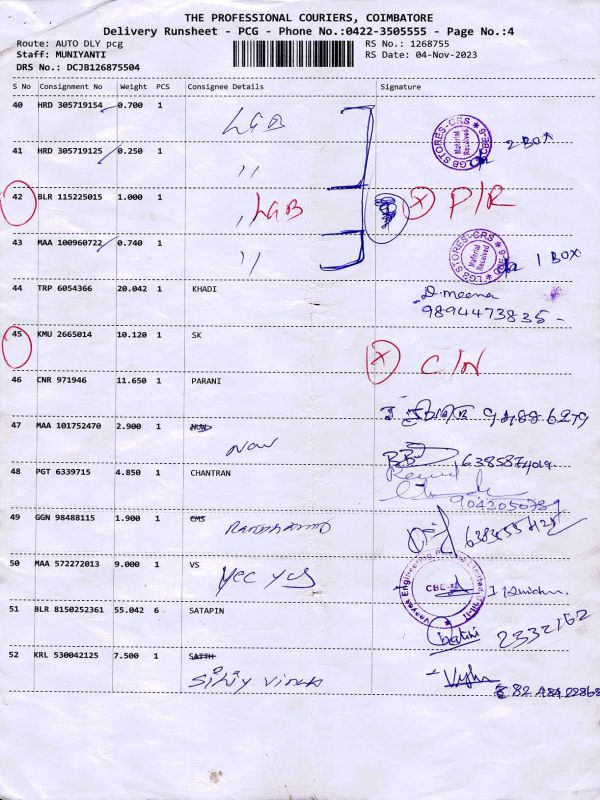 THE PROFESSIONAL COURIERS, COIMBATORE
Delivery Runsheet - PCG - Phone No.:0422-3505555 - Page No.:4
Route: AUTO DLY pcg RS No.: 1268755
Staff: MUNIYANTI RS Date: 04-Nov-2023
DRS No.: DCJB126875504
S No Consignment No Weight PCS Consignee Details Signature
40 HRD 305719154 0.700 1 LGB LGB STORES-CRS Material Received CBE-6 2 BOX
41 HRD 305719125 0.250 1 ,,
42 BLR 115225015 1.000 1 ,, LGB X P/R
43 MAA 100960722 0.740 1 ,, LGB STORES-CRS Material Received CBE-6 1 BOX
44 TRP 6054366 20.042 1 KHADI D.meena
9894473835-
45 KMU 2665014 10.120 1 SK X C/N
46 CNR 971946 11.650 1 PARANI
47 MAA 101752470 2.900 1 NOW
48 PGT 6339715 4.850 1 CHANTRAN
49 GGN 98488115 1.900 1 CMS
50 MAA 572272013 9.000 1 VS CBE
51 BLR 8150252361 55.042 6 SATAPIN 2332162
52 KRL 530042125 7.500 1 SATTH